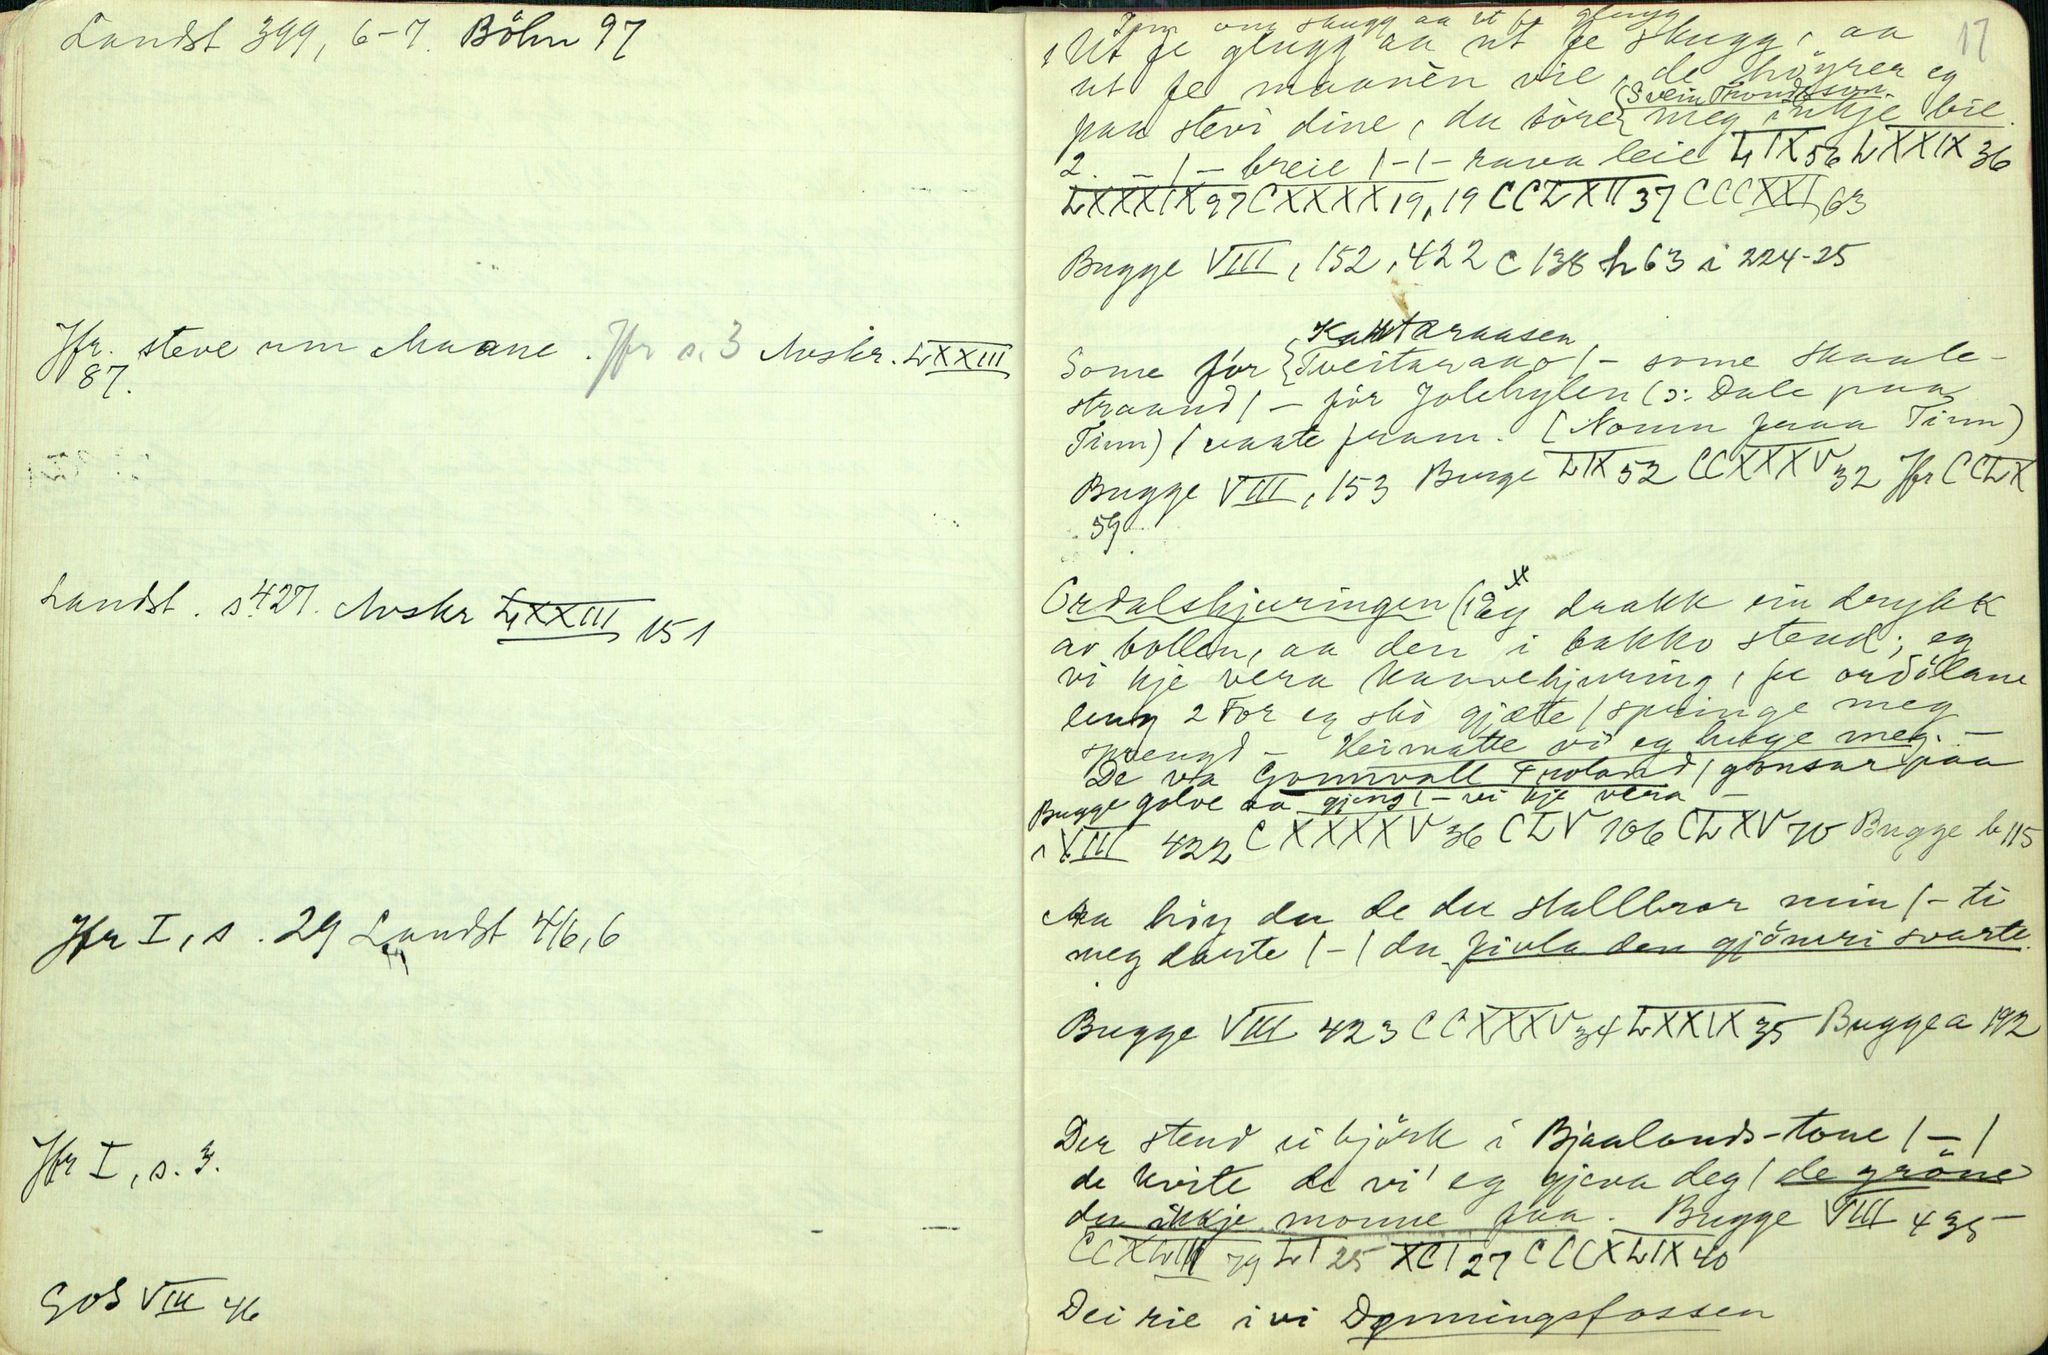 Landst 399, 6-7. Böhn 97
Jfr. steve um Maane. Jfr s. 3 Avskr. LXXIII
87.
Landst. s. 427. Avskr LXXIII 151
Jfr I, s. 29 Landst 416, 6
Jfr I, s. 3.
GoS VIII 46
17
om skugg aa ut fe glugg
Ut fe glugg aa ut fe skugg, aa
ut fe maanen vie, de höyrer eg
(Svein Trondsson
paa stevi dine, du töre meg inkje bie.
2. - | - breie | - | - rava leie LIX 56 LXXIX 36
LXXXIX 97 CXXXX 19, 19 CCLXII 37 CCCXXI, 63
Bugge VIII, 152, 422 c 138 h 63 i 224-25
Some för { Tveitarano | - some skaale-
straand | - för Jolehylen (ɔ: Dale paa
Tinn) | vaate fram. (Nomn fraa Tinn)
Bugge VIII, 153 Burge LIX 52 CCXXXV 32 Jfr CCLX
59
Ordalshjuringen (: Eg drakk ein drykk
av bollen, aa den i bakko stend; eg
vi kje vera kaavehjuring, fe ordölane
leng 2 For eg sko gjæte | springe meg
sprengd - Heimatte vi eg hugge meg. -
De va Gonnvall Froland | gonsar paa
Bugge golve aa gjeng | - vi kje vera -
VIII 422 CXXXXV 36 CLV 106 CLXV 70 Bugge b 115
Aa höy du de du stallbror min | - ti
meg darte | - | du fivla den gjönsri svarte.
Bugge VIII 423 CCXXXV 34 LXXIX 35 Bugge a 192
Der stend ei björk i Bjaalands-tone | - |
de kvite de vi' eg gjeva deg | de gröne
du ikkje monne faa. Bugge VIII 435
79 LI 25 XCI 27 CCCXLIX 40
Dei rie ivi Dynningsfossen